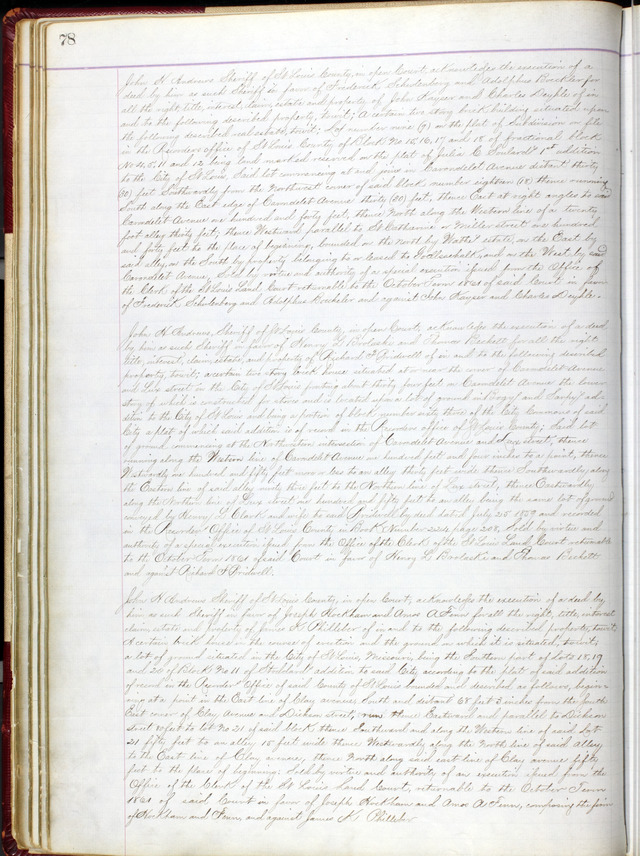 78
John H Andrews Sheriff of St Louis County, in open Court, acknowledges the execution of a
deed by him as such Sheriff in favor of Frederick Schulenburg and Adolphus Boeckler for
all the right, title, interest, claim, estate and property of John Kayser and Charles Deuple of in
and to the following described property, towit; A certain two story brick building situated upon
the following described real estate, towit; Lot number nine (9) on the plat of Subdivision on file
in the Recorders office of St Louis County of Block No 15, 16, 17 and 18 of fractional block
No 4, 5, 11 and 12 being land marked reserved on the plat of Julia C Soulards 1st addition
to the City of St Louis, Said lot commencing at and joins in Carondelet Avenue distant thirty
(30) feet Southwardly from the Northwest corner of said block number eighteen (18) thence running
South along the East edge of Carondelet Avenue thirty (30) feet, thence East at right angles to said
Carondelet Avenue one hundred and forty feet, thence North along the Western line of a twenty
foot alley thirty feet, thence Westward parallel to St Catharine or Miller street one hundred
and forty feet to the place of beginning, bounded on the North by estate, on the East by
said alley, on the South by property belonging to or leased to and on the West by said
Carondelet Avenue, Sold by virtue and authority of a special execution issued from the Office of
the Clerk of the St Louis Land Court returnable to the October Term 1861 of said Court in favor
of Frederick Schulenburg and Adolphus Boeckeler and against John Kayser and Charles Deuple.
John H Andrews Sheriff of St Louis County, in open Court, acknowledges the execution of a deed
by him as such Sheriff in favor of Henry L and Thomas Beckett for all the right
title, interest, claim, estate, and property of Richard F Bridwell of in and to the following described
property, towit; a certain two story brick house situated at or near the corner of Carondelet Avenue
and Lux street in the City of St Louis fronting about thirty four feet on Carondelet Avenue the lower
story of which is constructed for stores and is located upon a lot of ground in
addition to the City of St Louis and being a portion of block number sixty three of the City Commons of said
City a plat of which said addition is of record in the Recorders office of St Louis County; Said lot
of ground commencing at the Northwestern intersection of Carondelet Avenue and Lux street, thence
running along the Western line of Carondelet Avenue one hundred feet and four inches to a point; thence
Westwardly one hundred and fifty feet more or less to an alley thirty feet wide thence Southwardly along
the Eastern line of said alley ninety three feet to the Northern line of Lux street, thence Eastwardly
along the Northern line of Lux street one hundred and fifty feet to an alley being the same lot of ground
conveyed by Henry L Clark and wife to said Bridwell by deed dated July 25 1859 and recorded
in the Recorders Office of St Louis County in Book Number 224 page 208, Sold by virtue and
authority of a special execution issued from the Office of the Clerk of the St Louis Land Court returnable
to the October Term 1861 of said Court in favor of Henry L and Thomas Beckett
and against Richard F Bridwell.
John H Andrews Sheriff of St Louis County, in open Court, acknowledges the execution of a deed by
him as such Sheriff in favor of Joseph Kirkham and Amos A Fenn for all the right, title, interest
claim, estate and property of James K Philleber of in and to the following described property, towit;
A certain brick house in the course of erection and the ground on which it is situated, towit;
a lot of ground situated in the City of St Louis, Missouri, being the Southern part of Lots 18, 19
and 20 of Block No 11 of Stoddard addition to said City according to the plat of said addition
of record in the Recorders Office of said County of St Louis bounded and described as follows, begin-
ning at a point in the East line of Clay avenue South and distant 68 feet 3 inches from the South
East corner of Clay Avenue and Dickson Street, run thence Eastward and parallel to Dickson
Street feet to lot No 21 of said block thence Southward and along the Western line of said Lot
21 fifty feet to an alley 15 feet wide thence Westwardly along the North line of said Alley
to the East line of Clay avenue, thence North along said east line of Clay avenue fifty
feet to the place of beginning; Sold by virtue and authority of an execution issued from the
Office of the Clerk of the St Louis Land Court, returnable to the October Term
1861 of said Court in favor of Joseph Kirkham and Amos A Fenn, composing the firm
of Kirkham and Fenn, and against James K Philleber